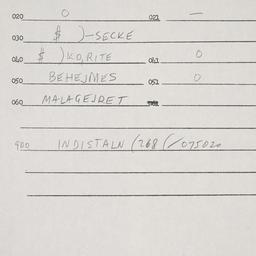 020 O 021 —
030 $ )-SECKE
040 $ )KO,RITE 041 O
050 BEHEJMES 051 O
060 MALAGEJRET
900 INDISTALN (268 (/075020